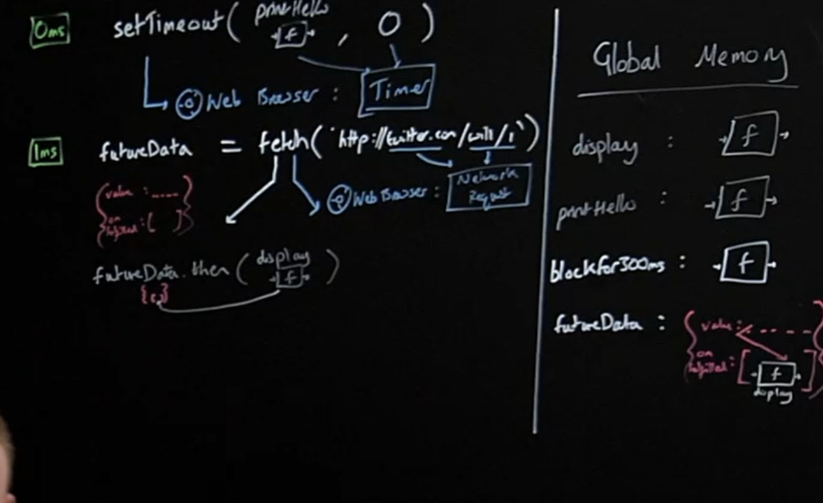 0ms setTimeout( printHello f , 0 )
Web Browser : Timer
1ms futureData = fetch('http://twitter.com/will/1')
Web Browser : Network Request
{ value : .....
on fulfilled : [ ] }
futureData.then( display f )
Global Memory
display : f
printHello : f
blockfor300ms : f
futureData : { value : - - - - -
on fulfilled : [ f ] }
display